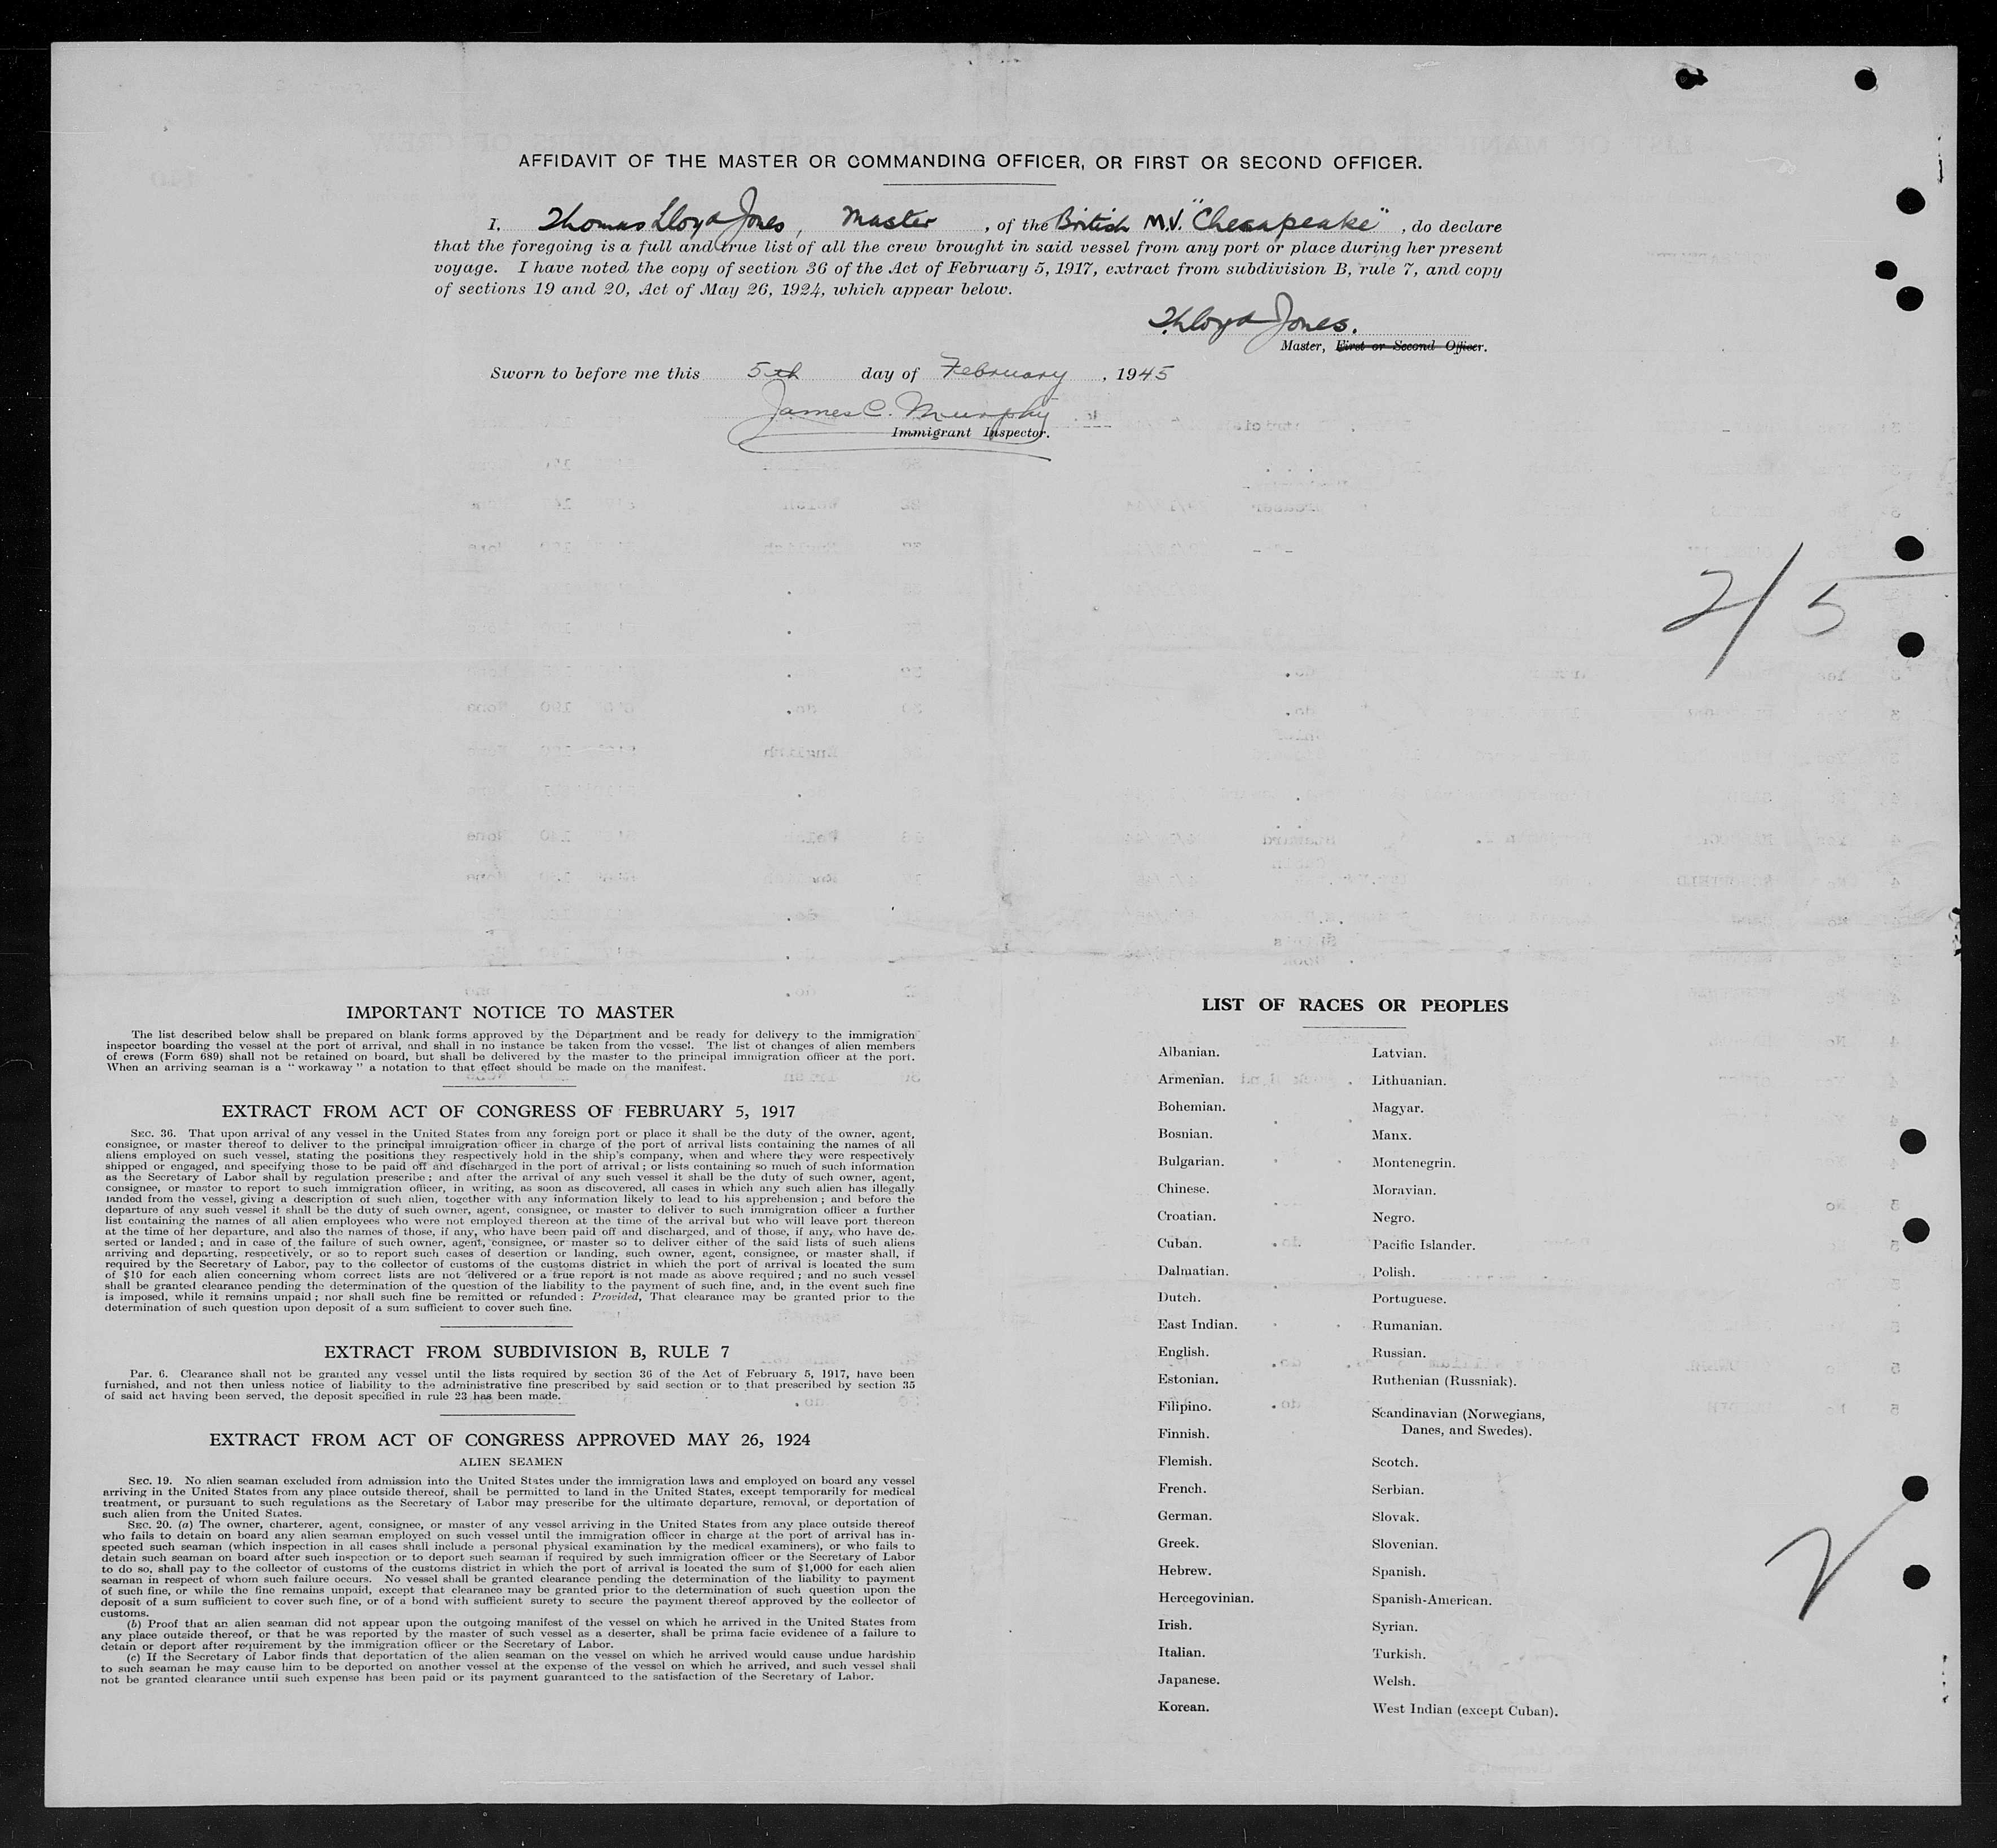 AFFIDAVIT OF THE MASTER OR COMMANDING OFFICER, OR FIRST OR SECOND OFFICER.
I, Thomas Lloyd Jones, Master, of the British M.V. "Chesapeake", do declare
that the foregoing is a full and true list of all the crew brought in said vessel from any port or place during her present
voyage. I have noted the copy of section 36 of the Act of February 5, 1917, extract from subdivision B, rule 7, and copy
of sections 19 and 20, Act of May 26, 1924, which appear below.
T. Lloyd Jones.
Master, First or Second Officer.
Sworn to before me this 5th day of February, 1945
James C. Murphy
Immigrant Inspector.
2/5
IMPORTANT NOTICE TO MASTER
The list described below shall be prepared on blank forms approved by the Department and be ready for delivery to the immigration
inspector boarding the vessel at the port of arrival, and shall in no instance be taken from the vessel. The list of changes of alien members
of crews (Form 689) shall not be retained on board, but shall be delivered by the master to the principal immigration officer at the port.
When an arriving seaman is a "workaway" a notation to that effect should be made on the manifest.
EXTRACT FROM ACT OF CONGRESS OF FEBRUARY 5, 1917
SEC. 36. That upon arrival of any vessel in the United States from any foreign port or place it shall be the duty of the owner, agent,
consignee, or master thereof to deliver to the principal immigration officer in charge of the port of arrival lists containing the names of all
aliens employed on such vessel, stating the positions they respectively hold in the ship's company, when and where they were respectively
shipped or engaged, and specifying those to be paid off and discharged in the port of arrival; or lists containing so much of such information
as the Secretary of Labor shall by regulation prescribe; and after the arrival of any such vessel it shall be the duty of such owner, agent,
consignee, or master to report to such immigration officer, in writing, as soon as discovered, all cases in which any such alien has illegally
landed from the vessel, giving a description of such alien, together with any information likely to lead to his apprehension; and before the
departure of any such vessel it shall be the duty of such owner, agent, consignee, or master to deliver to such immigration officer a further
list containing the names of all alien employees who were not employed thereon at the time of the arrival but who will leave port thereon
at the time of her departure, and also the names of those, if any, who have been paid off and discharged, and of those, if any, who have de-
serted or landed; and in case of the failure of such owner, agent, consignee, or master so to deliver either of the said lists of such aliens
arriving and departing, respectively, or so to report such cases of desertion or landing, such owner, agent, consignee, or master shall, if
required by the Secretary of Labor, pay to the collector of customs of the customs district in which the port of arrival is located the sum
of $10 for each alien concerning whom correct lists are not delivered or a true report is not made as above required; and no such vessel
shall be granted clearance pending the determination of the question of the liability to the payment of such fine, and, in the event such fine
is imposed, while it remains unpaid; nor shall such fine be remitted or refunded: Provided, That clearance may be granted prior to the
determination of such question upon deposit of a sum sufficient to cover such fine.
EXTRACT FROM SUBDIVISION B, RULE 7
Par. 6. Clearance shall not be granted any vessel until the lists required by section 36 of the Act of February 5, 1917, have been
furnished, and not then unless notice of liability to the administrative fine prescribed by said section or to that prescribed by section 35
of said act having been served, the deposit specified in rule 23 has been made.
EXTRACT FROM ACT OF CONGRESS APPROVED MAY 26, 1924
ALIEN SEAMEN
SEC. 19. No alien seaman excluded from admission into the United States under the immigration laws and employed on board any vessel
arriving in the United States from any place outside thereof, shall be permitted to land in the United States, except temporarily for medical
treatment, or pursuant to such regulations as the Secretary of Labor may prescribe for the ultimate departure, removal, or deportation of
such alien from the United States.
SEC. 20. (a) The owner, charterer, agent, consignee, or master of any vessel arriving in the United States from any place outside thereof
who fails to detain on board any alien seaman employed on such vessel until the immigration officer in charge at the port of arrival has in-
spected such seaman (which inspection in all cases shall include a personal physical examination by the medical examiners), or who fails to
detain such seaman on board after such inspection or to deport such seaman if required by such immigration officer or the Secretary of Labor
to do so, shall pay to the collector of customs of the customs district in which the port of arrival is located the sum of $1,000 for each alien
seaman in respect of whom such failure occurs. No vessel shall be granted clearance pending the determination of the liability to payment
of such fine, or while the fine remains unpaid, except that clearance may be granted prior to the determination of such question upon the
deposit of a sum sufficient to cover such fine, or of a bond with sufficient surety to secure the payment thereof approved by the collector of
customs.
(b) Proof that an alien seaman did not appear upon the outgoing manifest of the vessel on which he arrived in the United States from
any place outside thereof, or that he was reported by the master of such vessel as a deserter, shall be prima facie evidence of a failure to
detain or deport after requirement by the immigration officer or the Secretary of Labor.
(c) If the Secretary of Labor finds that deportation of the alien seaman on the vessel on which he arrived would cause undue hardship
to such seaman he may cause him to be deported on another vessel at the expense of the vessel on which he arrived, and such vessel shall
not be granted clearance until such expense has been paid or its payment guaranteed to the satisfaction of the Secretary of Labor.
LIST OF RACES OR PEOPLES
Albanian.
Armenian.
Bohemian.
Bosnian.
Bulgarian.
Chinese.
Croatian.
Cuban.
Dalmatian.
Dutch.
East Indian.
English.
Estonian.
Filipino.
Finnish.
Flemish.
French.
German.
Greek.
Hebrew.
Hercegovinian.
Irish.
Italian.
Japanese.
Korean.
Latvian.
Lithuanian.
Magyar.
Manx.
Montenegrin.
Moravian.
Negro.
Pacific Islander.
Polish.
Portuguese.
Rumanian.
Russian.
Ruthenian (Russniak).
Scandinavian (Norwegians,
Danes, and Swedes).
Scotch.
Serbian.
Slovak.
Slovenian.
Spanish.
Spanish-American.
Syrian.
Turkish.
Welsh.
West Indian (except Cuban).